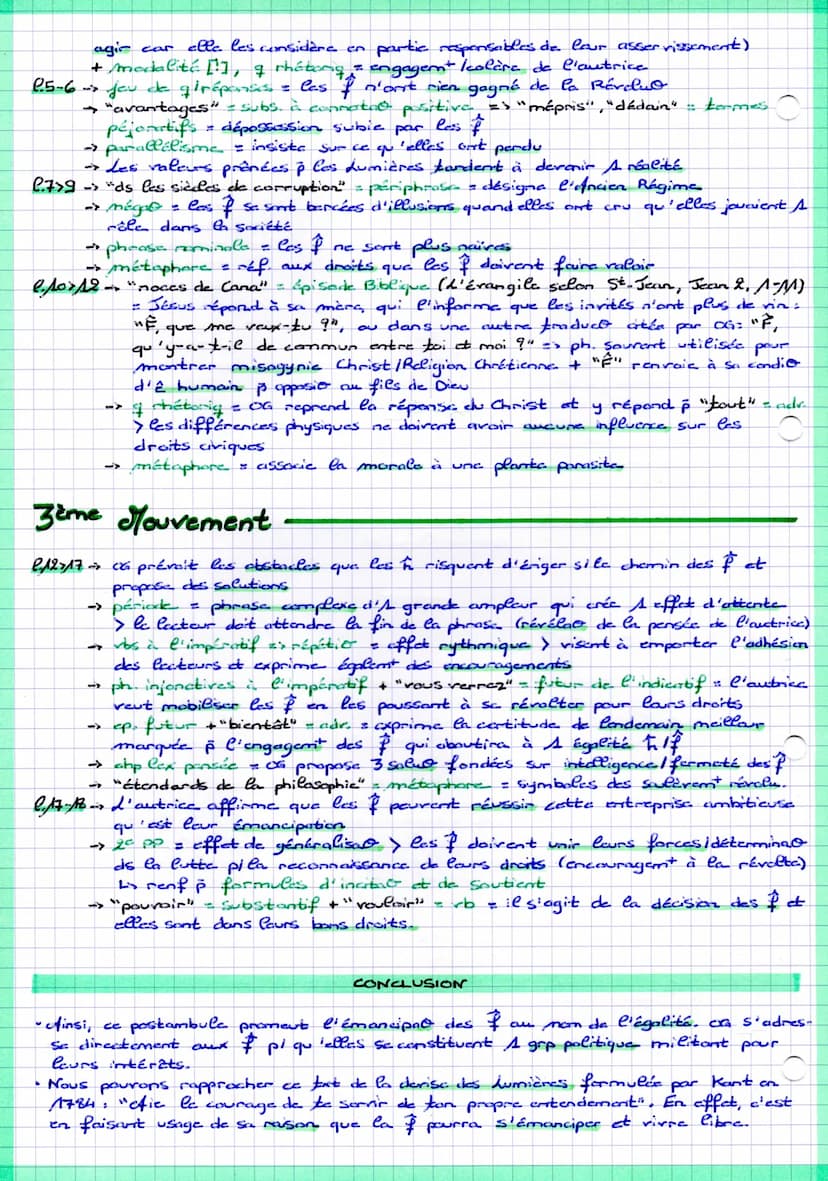 agir car elle les considère en partie responsables de leur asservissement)
+ modalité [!], q rhétoriq = engagem+ /colère de l'autrice
l.5-6 -> jeu de q/réponses = les f̂ n'ont rien gagné de la Révoluo
-> "avantages" = subs. à connotao positive => "mépris", "dédain" = termes
péjoratifs = dépossession subie par les f̂
-> parallélisme = insiste sur ce qu'elles ont perdu
-> Les valeurs prônées p̄ les Lumières tardent à devenir 1 réalité
l.7>9 -> "ds les siècles de corruption" = périphrase = désigne l'Ancien Régime
-> négao = les f̂ se sont bercées d'illusions quand elles ont cru qu'elles jouaient 1
rôle dans la société
-> phrase nominale = les f̂ ne sont plus naïves
-> métaphore = réf. aux droits que les f̂ doivent faire valoir
l.10>12 -> "noces de Cana" = épisode Biblique (L'évangile selon St-Jean, Jean 2, 1-11)
= Jésus répond à sa mère, qui l'informe que les invités n'ont plus de vin:
"F̂, que me veux-tu ?", ou dans une autre traduco citée par OG: "F̂,
qu'y-a-t-il de commun entre toi et moi ?" => ph. souvent utilisée pour
montrer misogynie Christ/Religion Chrétienne + "F̂" renvoie à sa condio
d'ê humain p̄ opposio au fils de Dieu
-> q rhétoriq = OG reprend la réponse du Christ et y répond p̄ "tout" = adv.
> les différences physiques ne doivent avoir aucune influence sur les
droits civiques
-> métaphore = associe la morale à une plante parasite
3ème Mouvement
l.12>17 -> OG prévoit les obstacles que les ĥ risquent d'ériger s/le chemin des f̂ et
propose des solutions
-> période = phrase complexe d'1 grande ampleur qui crée 1 effet d'attente
> le lecteur doit attendre la fin de la phrase (révélao de la pensée de l'autrice)
-> vbs à l'impératif => répétio = effet rythmique > visent à emporter l'adhésion
des lecteurs et exprime églemt des encouragements
-> ph. injonctives à l'impératif + "vous verrez" = futur de l'indicatif = l'autrice
veut mobiliser les f̂ en les poussant à se révolter pour leurs droits
-> cp. futur + "bientôt" = adv. = exprime la certitude de lendemain meilleur
marquée p̄ l'engagemt des f̂ qui aboutira à 1 égalité ĥ/f̂
-> chp lex pensée = OG propose 3 soluo fondées sur intelligence/fermeté des f̂
-> "étendards de la philosophie" = métaphore = symboles des soulèvemt révolu.
l.17-18 -> L'autrice affirme que les f̂ peuvent réussir cette entreprise ambitieuse
qu'est leur émancipation
-> 2e pp = effet de généralisao > les f̂ doivent unir leurs forces/déterminao
ds la lutte p/la reconnaissance de leurs droits (encouragemt à la révolte)
↳ renf p̄ formules d'incitao et de soutient
-> "pouvoir" = substantif + "vouloir" = vb = il s'agit de la décision des f̂ et
elles sont dans leurs bons droits.
CONCLUSION
• Ainsi, ce postambule promeut l'émancipao des f̂ au nom de l'égalité. OG s'adres-
se directement aux f̂ p/ qu'elles se constituent 1 grp politique militant pour
leurs intérêts.
• Nous pouvons rapprocher ce txt de la devise des Lumières formulée par Kant en
1784: "Aie le courage de te servir de ton propre entendement". En effet, c'est
en faisant usage de sa raison que la f̂ pourra s'émanciper et vivre libre.